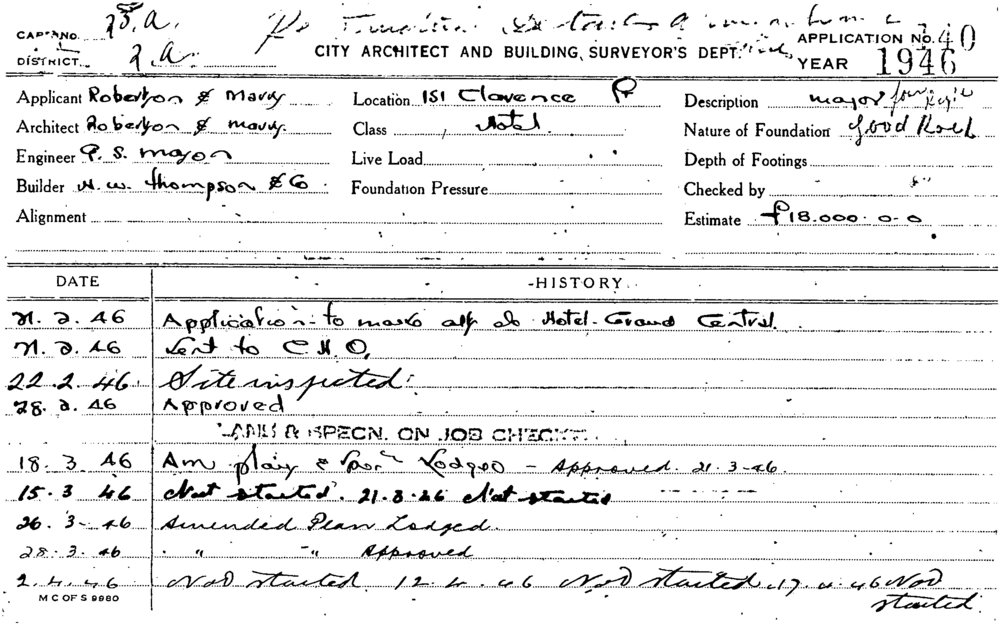 CARD NO. 25.a.
DISTRICT. 2.a.
CITY ARCHITECT AND BUILDING SURVEYOR'S DEPT.
APPLICATION NO. 140
YEAR 1946
Applicant Robertson & Marks
Location 151 Clarence
Description major
Architect Robertson & marks.
Class Hotel
Nature of Foundation Good Rock
Engineer P. S. major
Live Load
Depth of Footings
Builder H. W. Thompson & Co
Foundation Pressure
Checked by
Alignment
Estimate £18.000.0.0
DATE HISTORY
21. 2. 46 Application to make alt Hotel - Grand Central.
21. 2. 46 Sent to C.H.O.
22. 2. 46. Site inspected.
28. 2. 46 Approved
SPECN. ON JOB CHECK
18. 3. 46 Am Lodged - Approved. 21-3-46.
15. 3 46 Not started. 21.3.46 Not started
26. 3-46 Amended Plan Lodged.
28. 3. 46 " " Approved
2. 4. 46 Not started 12. 4. 46 Not started. 17. 4. 46 Not
M C OF S 9980
started.